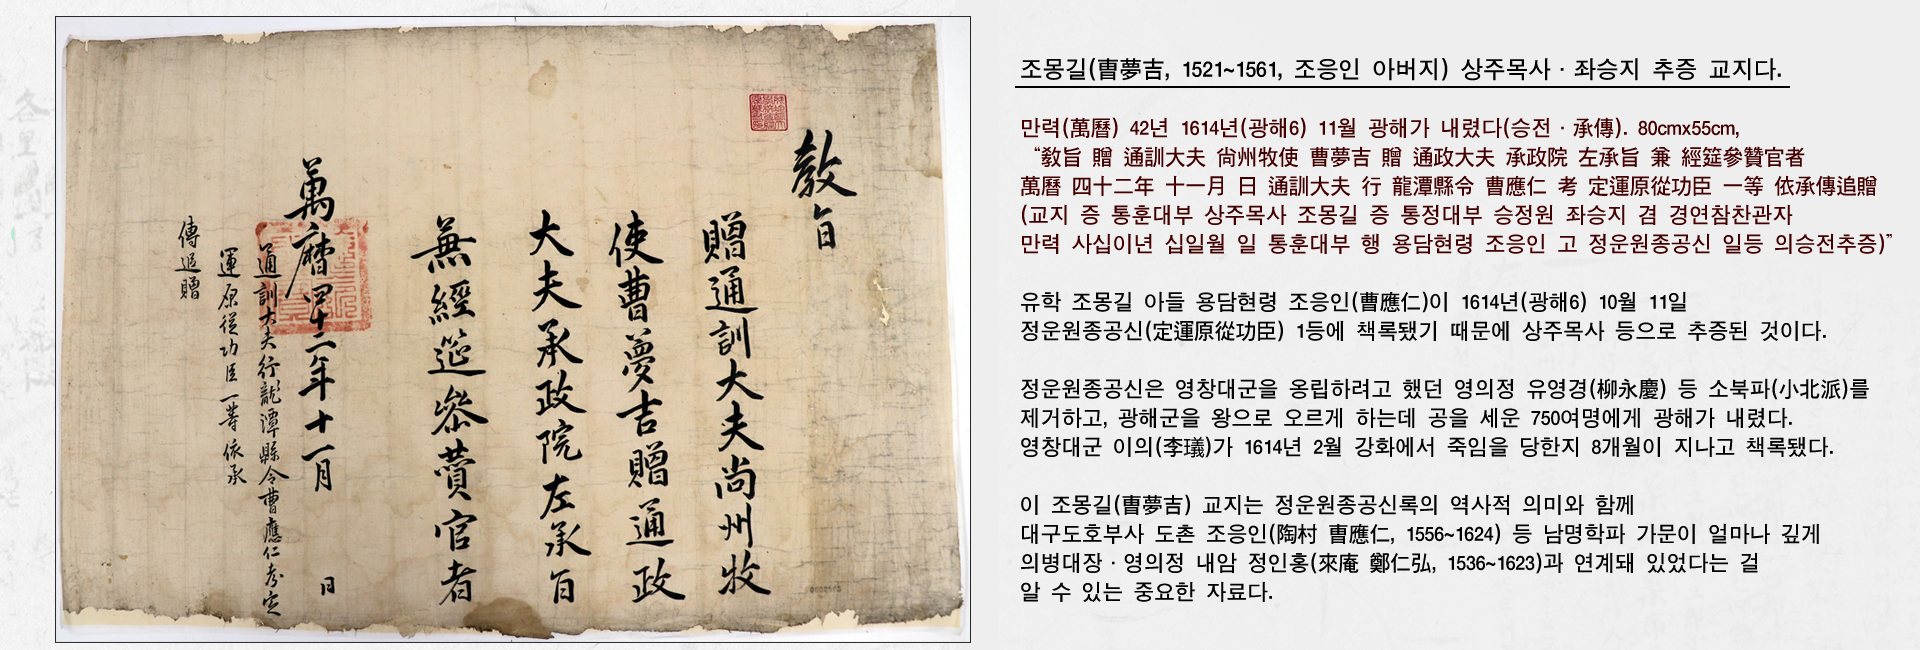 敎旨
贈通訓大夫尙州牧
使曹夢吉贈通政
大夫承政院左承旨
兼經筵參贊官者
萬曆四十二年十一月 日
通訓大夫行龍潭縣令曹應仁考定
運原從功臣一等依承
傳追贈
조몽길(曺夢吉, 1521~1561, 조응인 아버지) 상주목사 · 좌승지 추증 교지다.
만력(萬曆) 42년 1614년(광해6) 11월 광해가 내렸다(승전 · 承傳). 80cmx55cm,
“敎旨 贈 通訓大夫 尙州牧使 曹夢吉 贈 通政大夫 承政院 左承旨 兼 經筵參贊官者
萬曆 四十二年 十一月 日 通訓大夫 行 龍潭縣令 曹應仁 考 定運原從功臣 一等 依承傳追贈
(교지 증 통훈대부 상주목사 조몽길 증 통정대부 승정원 좌승지 겸 경연참찬관자
만력 사십이년 십일월 일 통훈대부 행 용담현령 조응인 고 정운원종공신 일등 의승전추증)”
유학 조몽길 아들 용담현령 조응인(曹應仁)이 1614년(광해6) 10월 11일
정운원종공신(定運原從功臣) 1등에 책록됐기 때문에 상주목사 등으로 추증된 것이다.
정운원종공신은 영창대군을 옹립하려고 했던 영의정 유영경(柳永慶) 등 소북파(小北派)를
제거하고, 광해군을 왕으로 오르게 하는데 공을 세운 750여명에게 광해가 내렸다.
영창대군 이의(李㼁)가 1614년 2월 강화에서 죽임을 당한지 8개월이 지나고 책록됐다.
이 조몽길(曺夢吉) 교지는 정운원종공신록의 역사적 의미와 함께
대구도호부사 도촌 조응인(陶村 曺應仁, 1556~1624) 등 남명학파 가문이 얼마나 깊게
의병대장 · 영의정 내암 정인홍(來庵 鄭仁弘, 1536~1623)과 연계돼 있었다는 걸
알 수 있는 중요한 자료다.